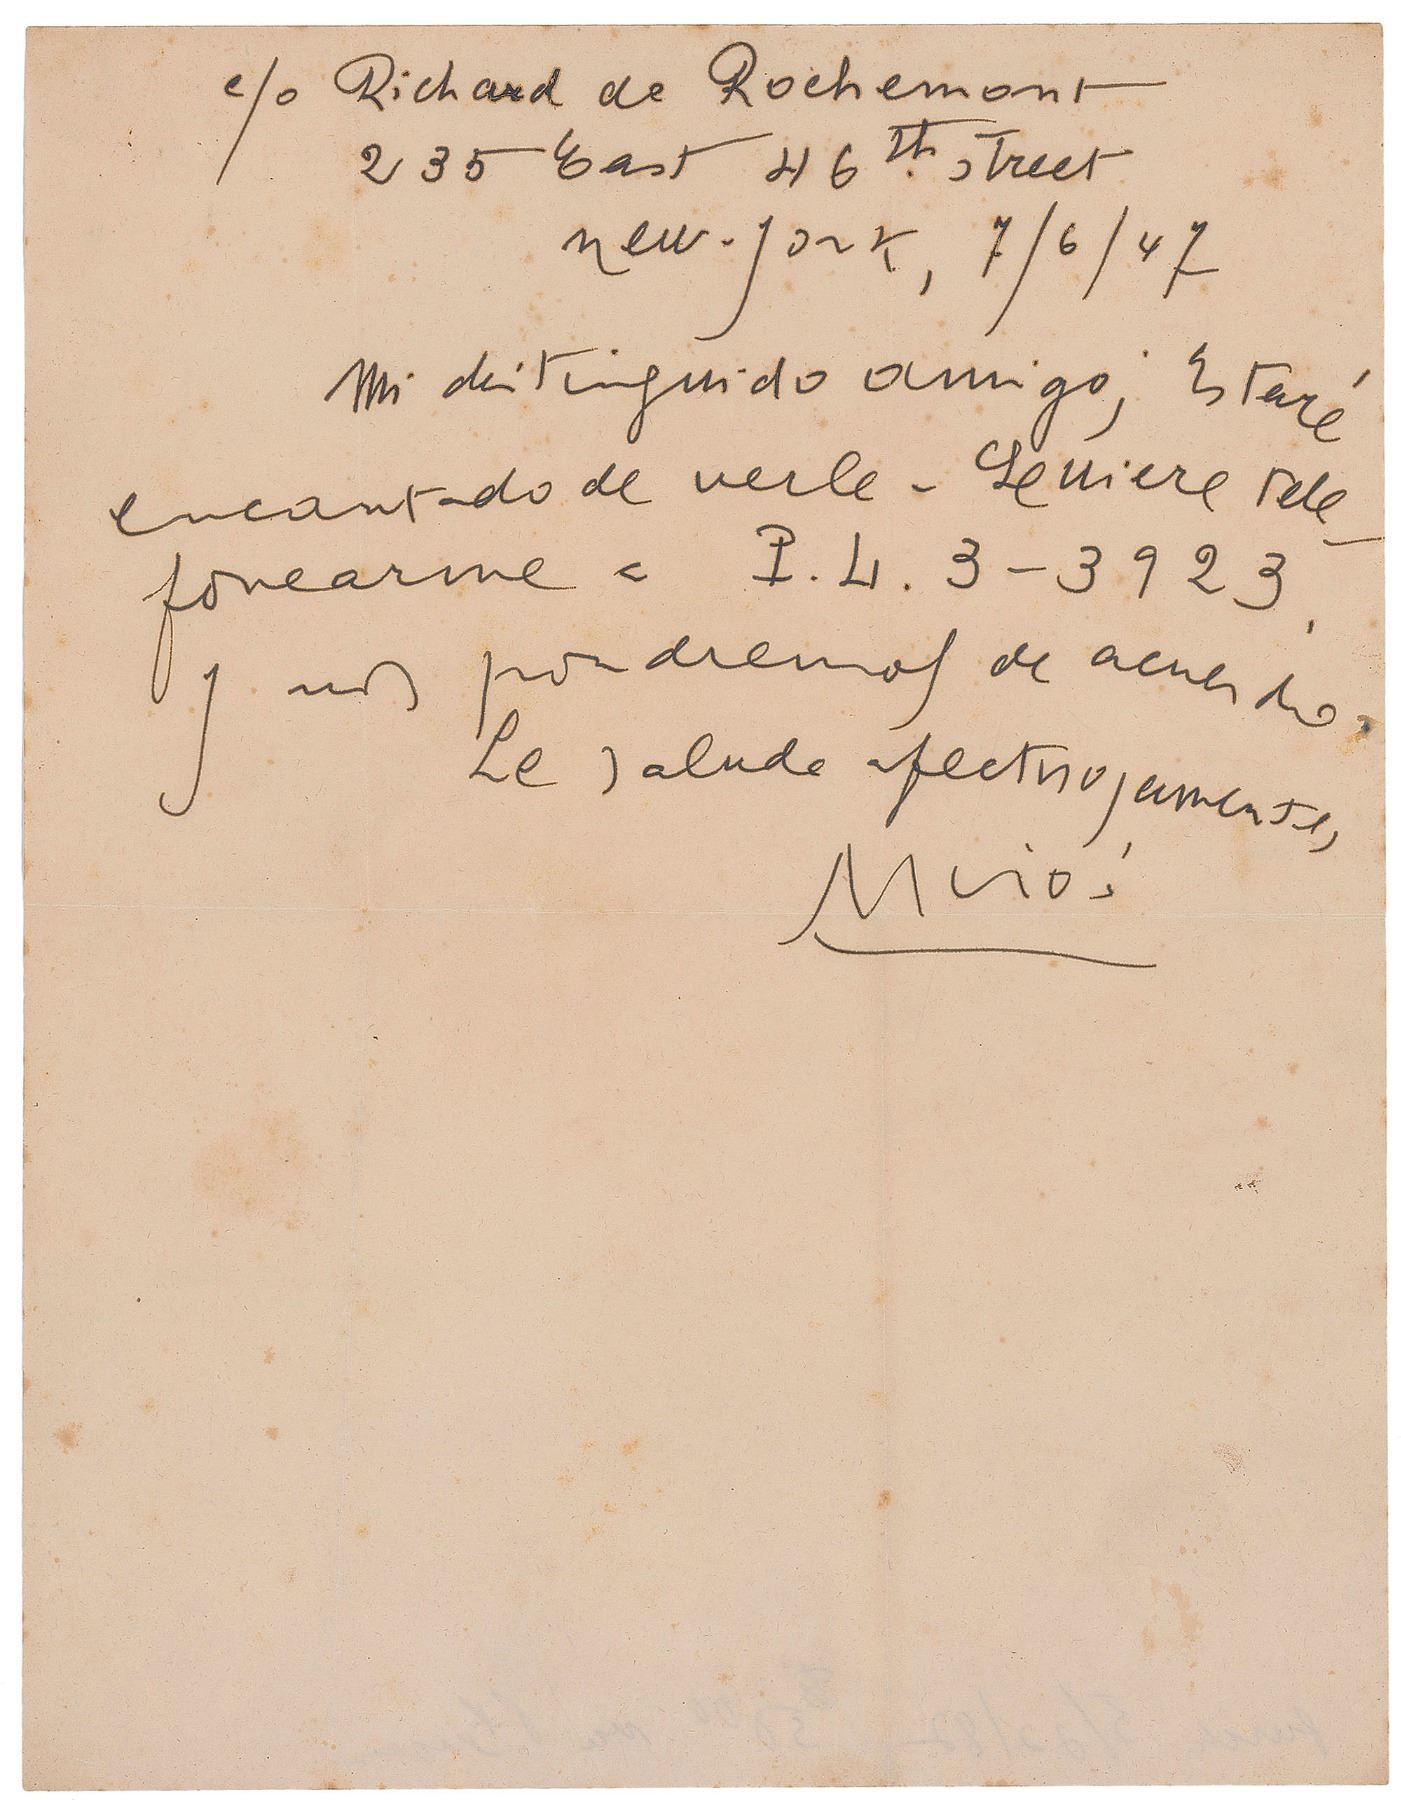 c/o Richard de Rochemont
235 East 46th. street
new-york, 7/6/47
Mi distinguido amigo; Estaré
encantado de verle - Se sirviere tele-
fonearme = P.L. 3-3923,
y nos pondremos de acuerdo.
Le saluda afectuosamente,
Miró.